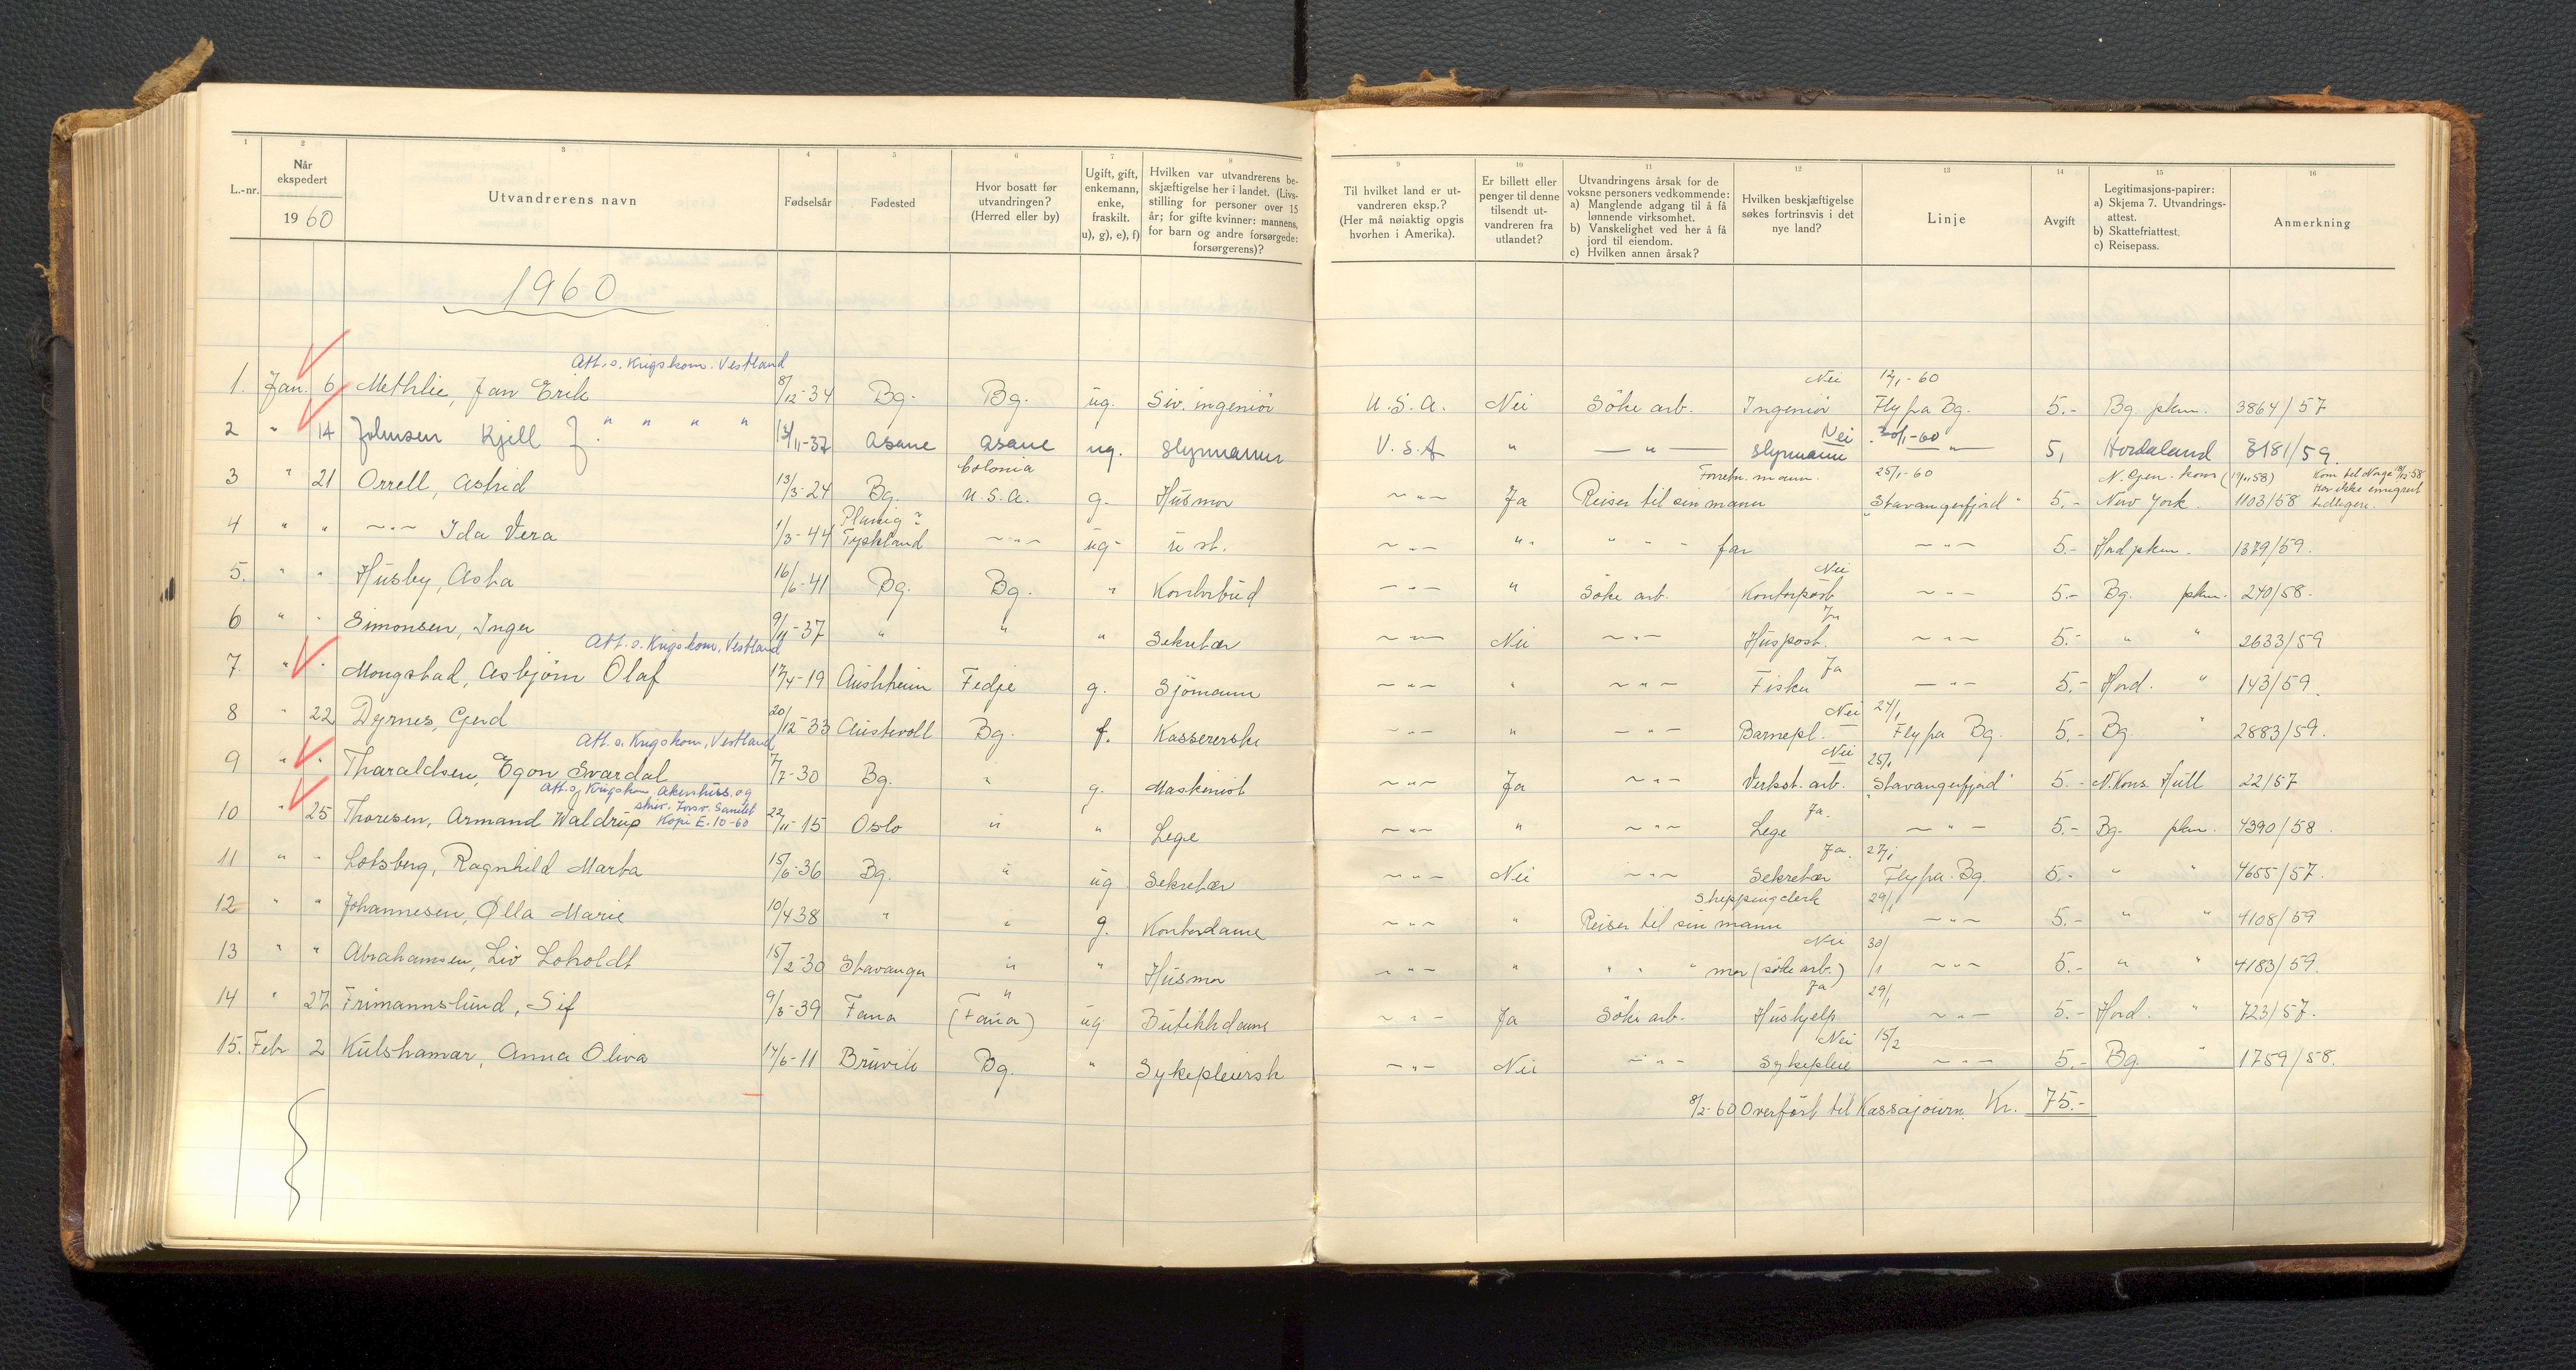 1 2 3 4 5 6 7 8 9 10 11 12 13 14 15 16
L.-nr. Når ekspedert 1960 Utvandrerens navn Fødselsår Fødested Hvor bosatt før utvandringen? (Herred eller by) Ugift, gift, enkemann, enke, fraskilt. u), g), e), f) Hvilken var utvandrerens beskjæftigelse her i landet. (Livsstilling for personer over 15 år; for gifte kvinner: mannens, for barn og andre forsørgede: forsørgerens)? Til hvilket land er utvandreren eksp.? (Her må nøiaktig opgis hvorhen i Amerika). Er billett eller penger til denne tilsendt utvandreren fra utlandet? Utvandringens årsak for de voksne personers vedkommende: a) Manglende adgang til å få lønnende virksomhet. b) Vanskelighet ved her å få jord til eiendom. c) Hvilken annen årsak? Hvilken beskjæftigelse søkes fortrinsvis i det nye land? Linje Avgift Legitimasjons-papirer: a) Skjema 7. Utvandringsattest. b) Skattefriattest. c) Reisepass. Anmerkning
1960
Att. s. Krigskom. Vestland Nei 12/1-60
1. Jan. 6 Methlie, Jan Erik 8/12-34 Bg. Bg. ug. Siv. ingeniör U.S.A. Nei Söke arb. Ingeniör Fly fra Bg. 5.- Bg. pkm. 3864/57
" " " " Nei 30/1-60
2 " 14 Johnsen Kjell J. 13/11-37 Åsane Åsane ug. Styrmann U.S.A " — " — styrmann — " — 5, Hordaland 3181/59.
Colonia Forretn. mann. 25/1-60 N. Gen. kons (19/11 58) Kom til Norge 18/12-58 Har ikke emigrert tidligere.
3 " 21 Orrell, Astrid 13/3-24 Bg. U.S.A. g. Husmor ~"~ Ja Reiser til sin mann "Stavangerfjord" 5.- New York. 1103/58
Planig?
4 " " ~"~ Ida Vera 1/3-44 Tyskland ~"~ ug. u st. ~"~ " " " " far ~"~ 5.- Hord pkm. 1379/59.
Nei
5. " " Husby, Asta 16/6-41 Bg. Bg. " Kontorbud ~"~ " Söke arb. Kontorpost ~"~ 5.- Bg. pkm. 240/58.
Ja
6 " " Simonsen, Inger 9/11-37 " " " Sekretær ~"~ Nei ~"~ Huspost. ~"~ 5.- " " 2633/59
Att. s. Krigskom. Vestland Ja
7. " " Mongstad, Asbjørn Olaf 17/4-19 Austrheim Fedje g. Sjömann ~"~ " ~"~ Fisker ~"~ 5.- Hord. " 143/59.
Nei 24/1
8 " 22 Dyrnes, Gerd 20/12-33 Austevoll Bg. f. Kassererske ~"~ " ~"~ Barnepl. Fly fra Bg. 5.- Bg. " 2883/59.
Att. s. Krigskom. Vestland Nei 25/1
9 " " Tharaldsen, Egon Svardal 7/7-30 Bg. " g. Maskinist ~"~ Ja ~"~ Verkst. arb. "Stavangerfjord" 5.- N. Kons. Hull 22/57
Att. s. Krigskom. Akershus. og skriv. Forsv. Sanitet Kopi E. 10-60 Ja.
10 " 25 Thoresen, Armand Waldrup 22/11-15 Oslo " " Lege ~"~ " ~"~ Lege ~"~ 5.- Bg. pkm. 4390/58.
Ja. 27/1
11 " " Lotsberg, Ragnhild Marta 15/6-36 Bg. " ug Sekretær ~"~ Nei ~"~ Sekretær Fly fra Bg. 5.- " " 4655/57.
Shippingclerk 29/1
12 " " Johannesen, Ølla Marie 10/4 38 " " g. Kontordame ~"~ " Reiser til sin mann ~"~ 5.- " " 4108/59
Nei 30/1
13 " " Abrahamsen, Liv Loholdt 15/2-30 Stavanger " " Husmor ~"~ " " " " mor (söke arb.) ~"~ 5.- " " 4183/59.
" Ja 29/1
14 " 27 Frimannslund, Sif 9/3-39 Fana (Fana) ug Butikkdame ~"~ Ja Söke arb. Hushjelp ~"~ 5.- Hord. " 723/57.
Nei 15/2
15. Febr 2 Kulshamar, Anna Oliva 14/6-11 Bruvik Bg. " Sykepleiersk ~"~ Nei ~"~ Sykepleie ~"~ 5.- Bg. " 1759/58.
8/2-60 Overfört til Kassajourn. Kr. 75.-